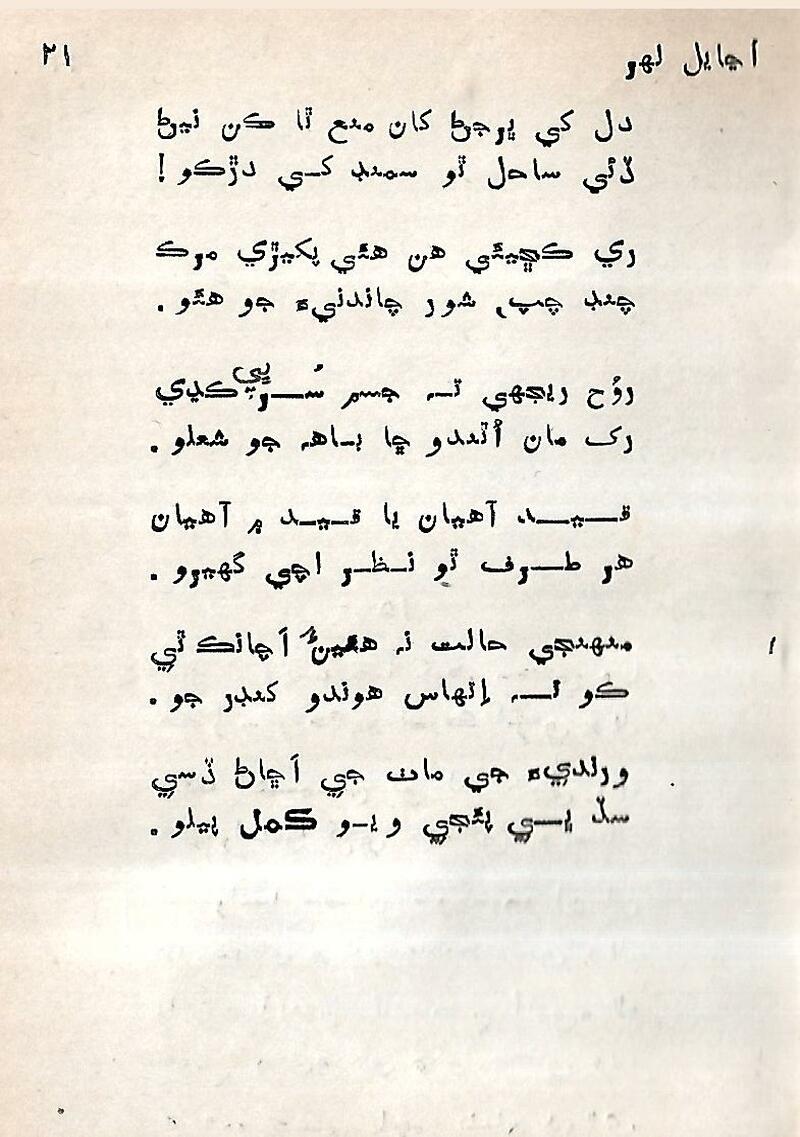 اڃايل لهر ٣١
دل کي ڀرجڻ کان منع ٿا ڪن نيڻ
ڏئي ساحل ٿو سمنڊ کي دڙڪو !
ري ڪڇيئي هن هئي پکيڙي مرڪ
چنڊ چپ، شور چاندنيءَ جو هئو .
روُح ريجهي تہ جسم سُرڪي ڀي ڪڍي
رک مان اُٿندو ڇا باهہ جو شعلو .
قيد آهيان يا قيد ۾ آهيان
هر طرف ٿو نظر اچي گهيرو .
منهنجي حالت نہ هيئن اَچانڪ ٿي
ڪو تہ اِتهاس هوندو کنڊر جو .
ورنديءَ جي مات جي اَڇاڻ ڏسي
سڏ ڀي پئجي ويو ڪمل پيلو .